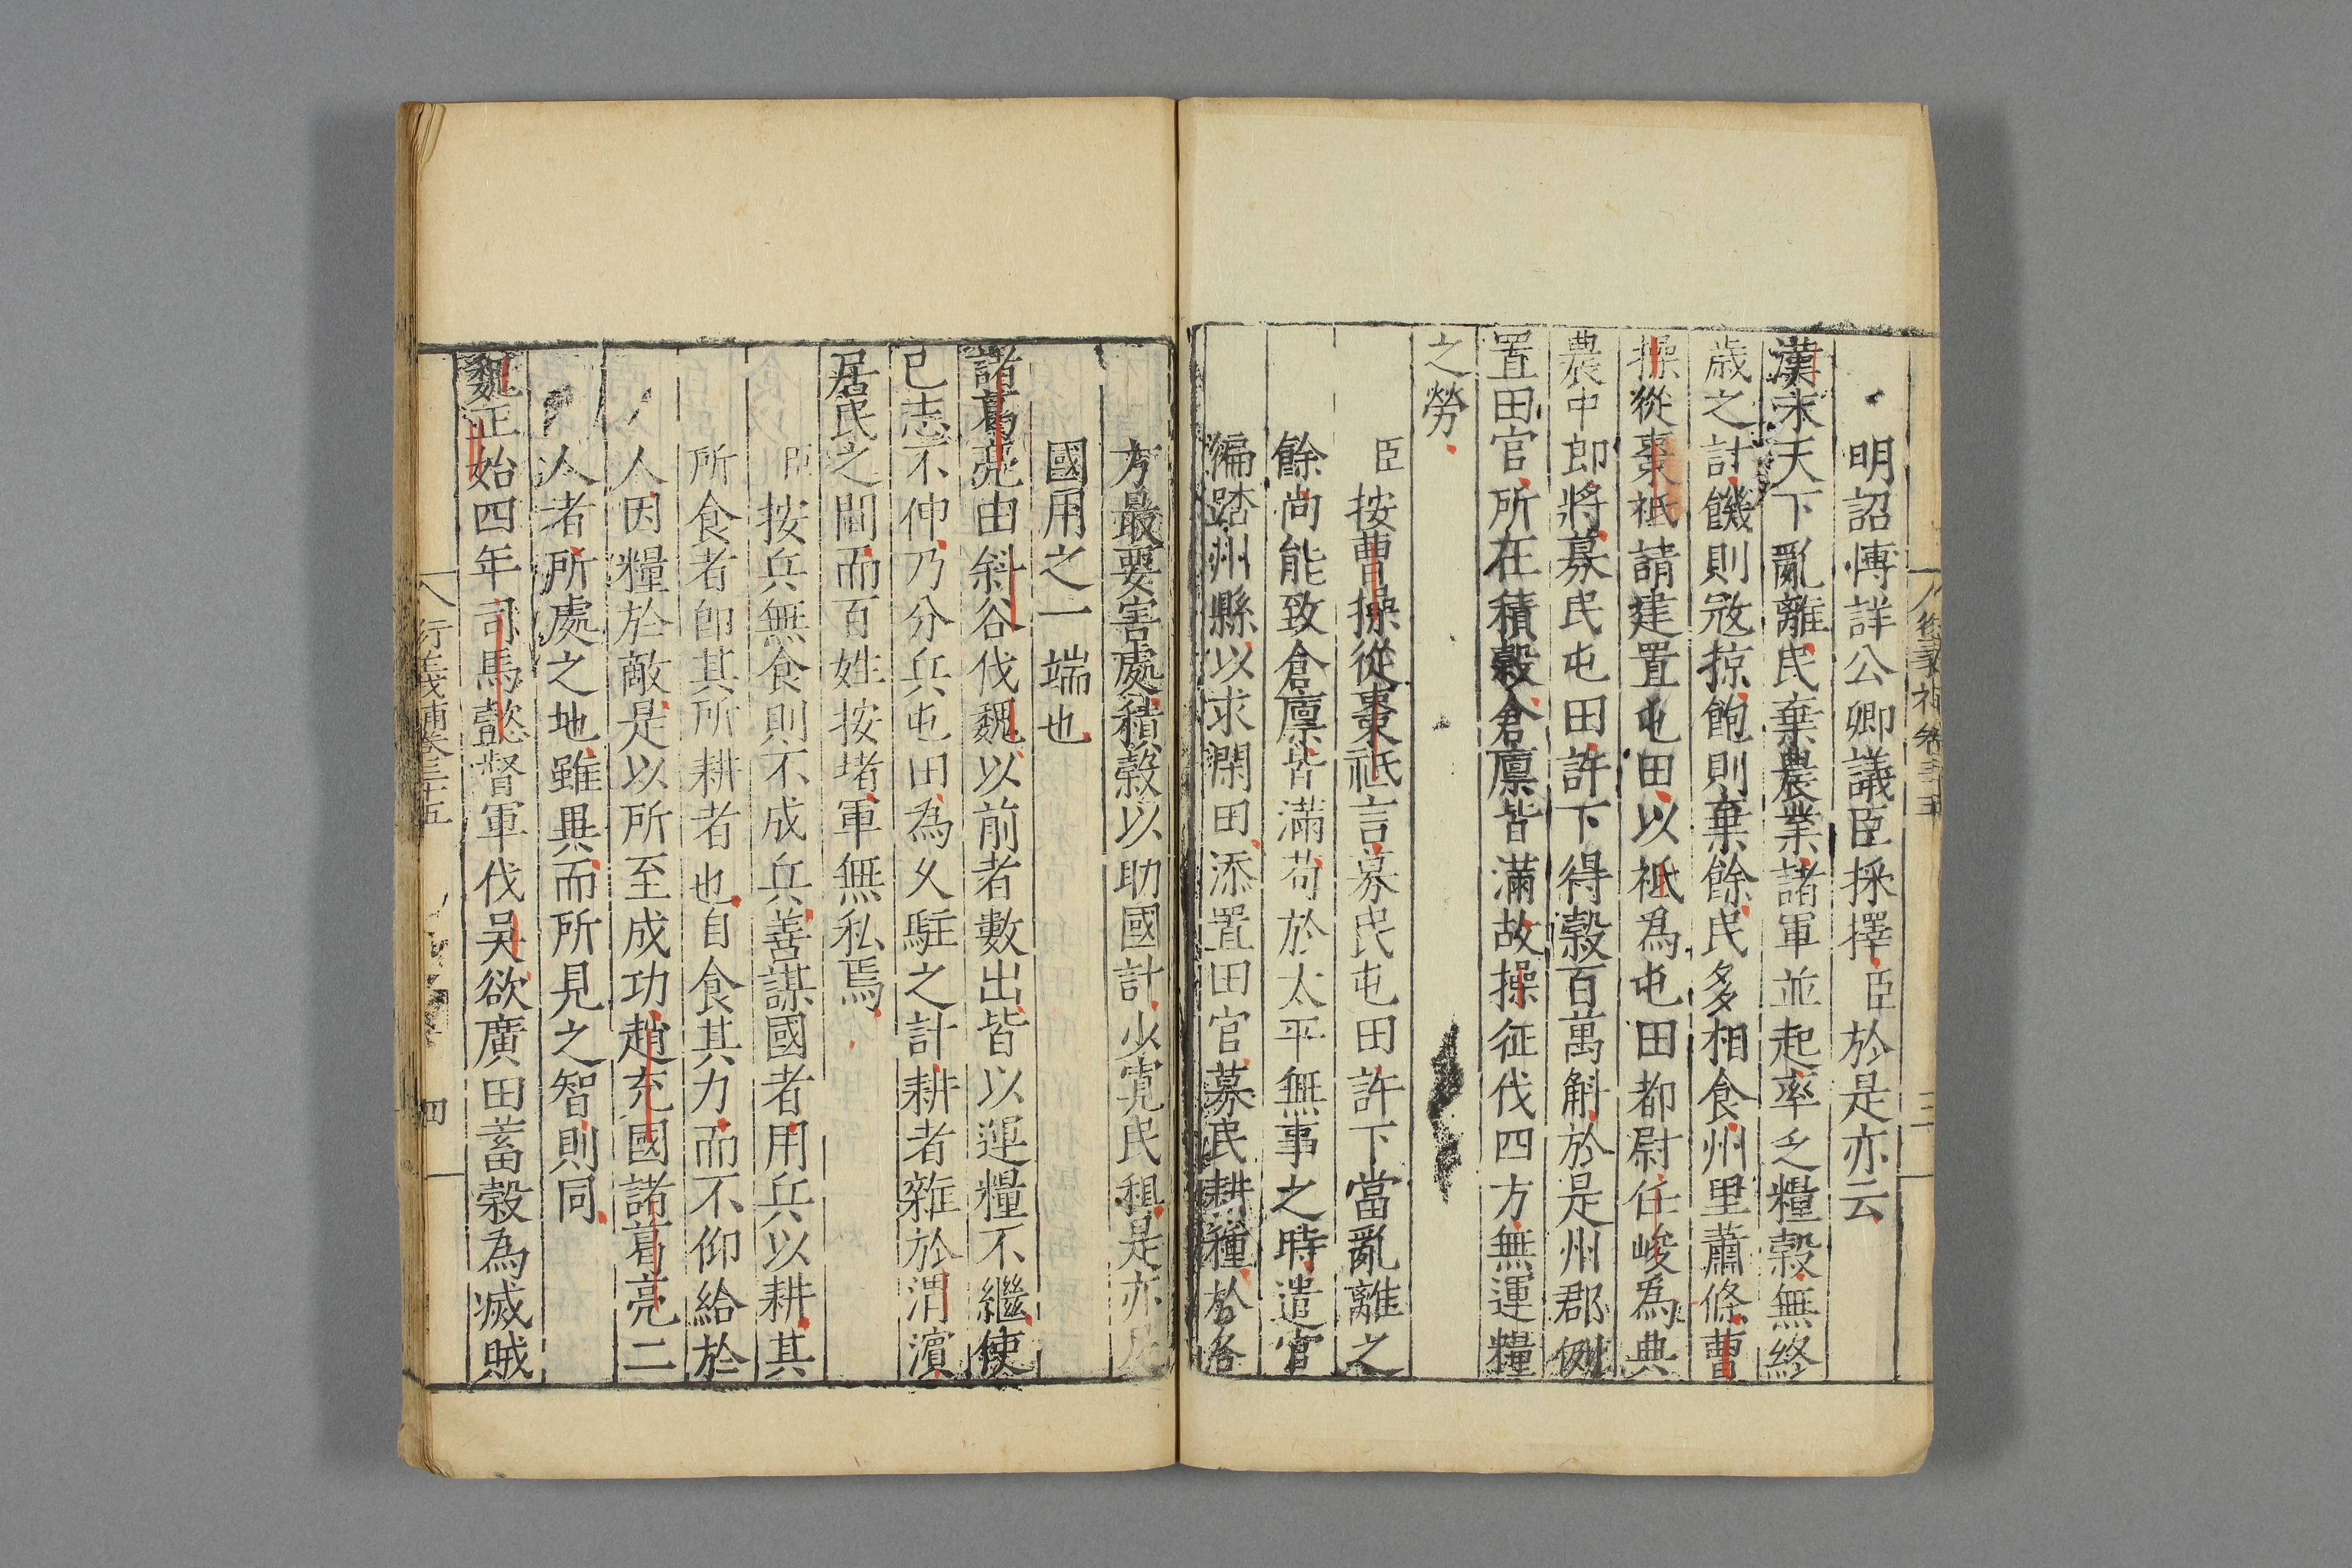 明詔博詳公卿議臣採擇臣於是亦云
漢末天下亂離民棄農業諸軍並起率乏糧穀無終
歲之計饑則寇掠飽則棄餘民多相食州里蕭條曹
操從棗祗請建置屯田以祗爲屯田都尉任峻爲典
農中郎將募民屯田許下得穀百萬斛於是州郡例
置田官所在積穀倉廪皆滿故操征伐四方無運糧
之勞
臣按曹操從棗祗言募民屯田許下當亂離之
餘尚能致倉廪皆滿苟於太平無事之時遣官
徧踏州縣以求閑田添置田官募民耕種於各
方最要害處積穀以助國計少寛民租是亦足
國用之一端也
諸葛亮由斜谷伐魏以前者數出皆以運糧不繼使
已志不伸乃分兵屯田為久駐之計耕者雜於渭濵
居民之間而百姓按堵軍無私焉
臣按兵無食則不成兵善謀國者用兵以耕其
所食者即其所耕者也自食其力而不仰給於
人因糧於敵是以所至成功趙充國諸葛亮二
人者所處之地雖異而所見之智則同
魏正始四年司馬懿督軍伐吳欲廣田蓄穀為滅賊
行義補卷三十五
四